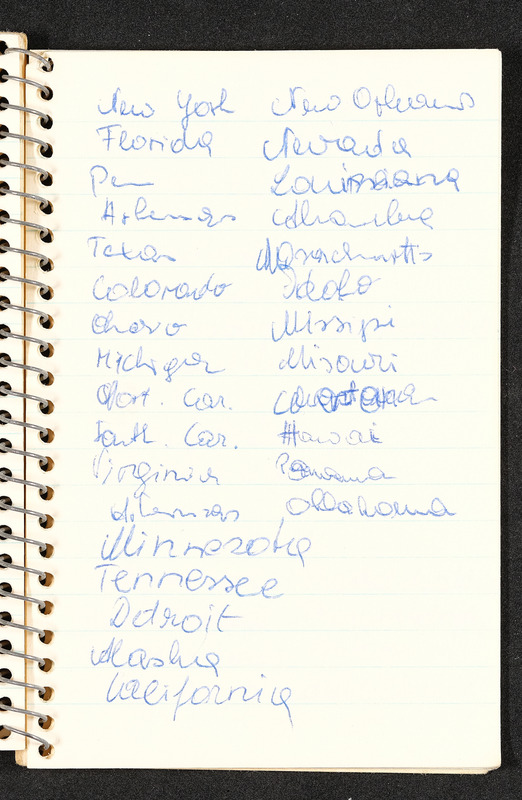 New York
Florida
Pen
Arkansas
Texas
Colorado
Michigan
Nort. Car.
South. Car.
Virginia
Arkansas
Minnesota
Tennessee
Detroit
Alaska
California
New Orleans
Nevada
Louisiana
Masachusetts
Idaho
Missipi
Misouri
Hawai
Panama
Oklahoma